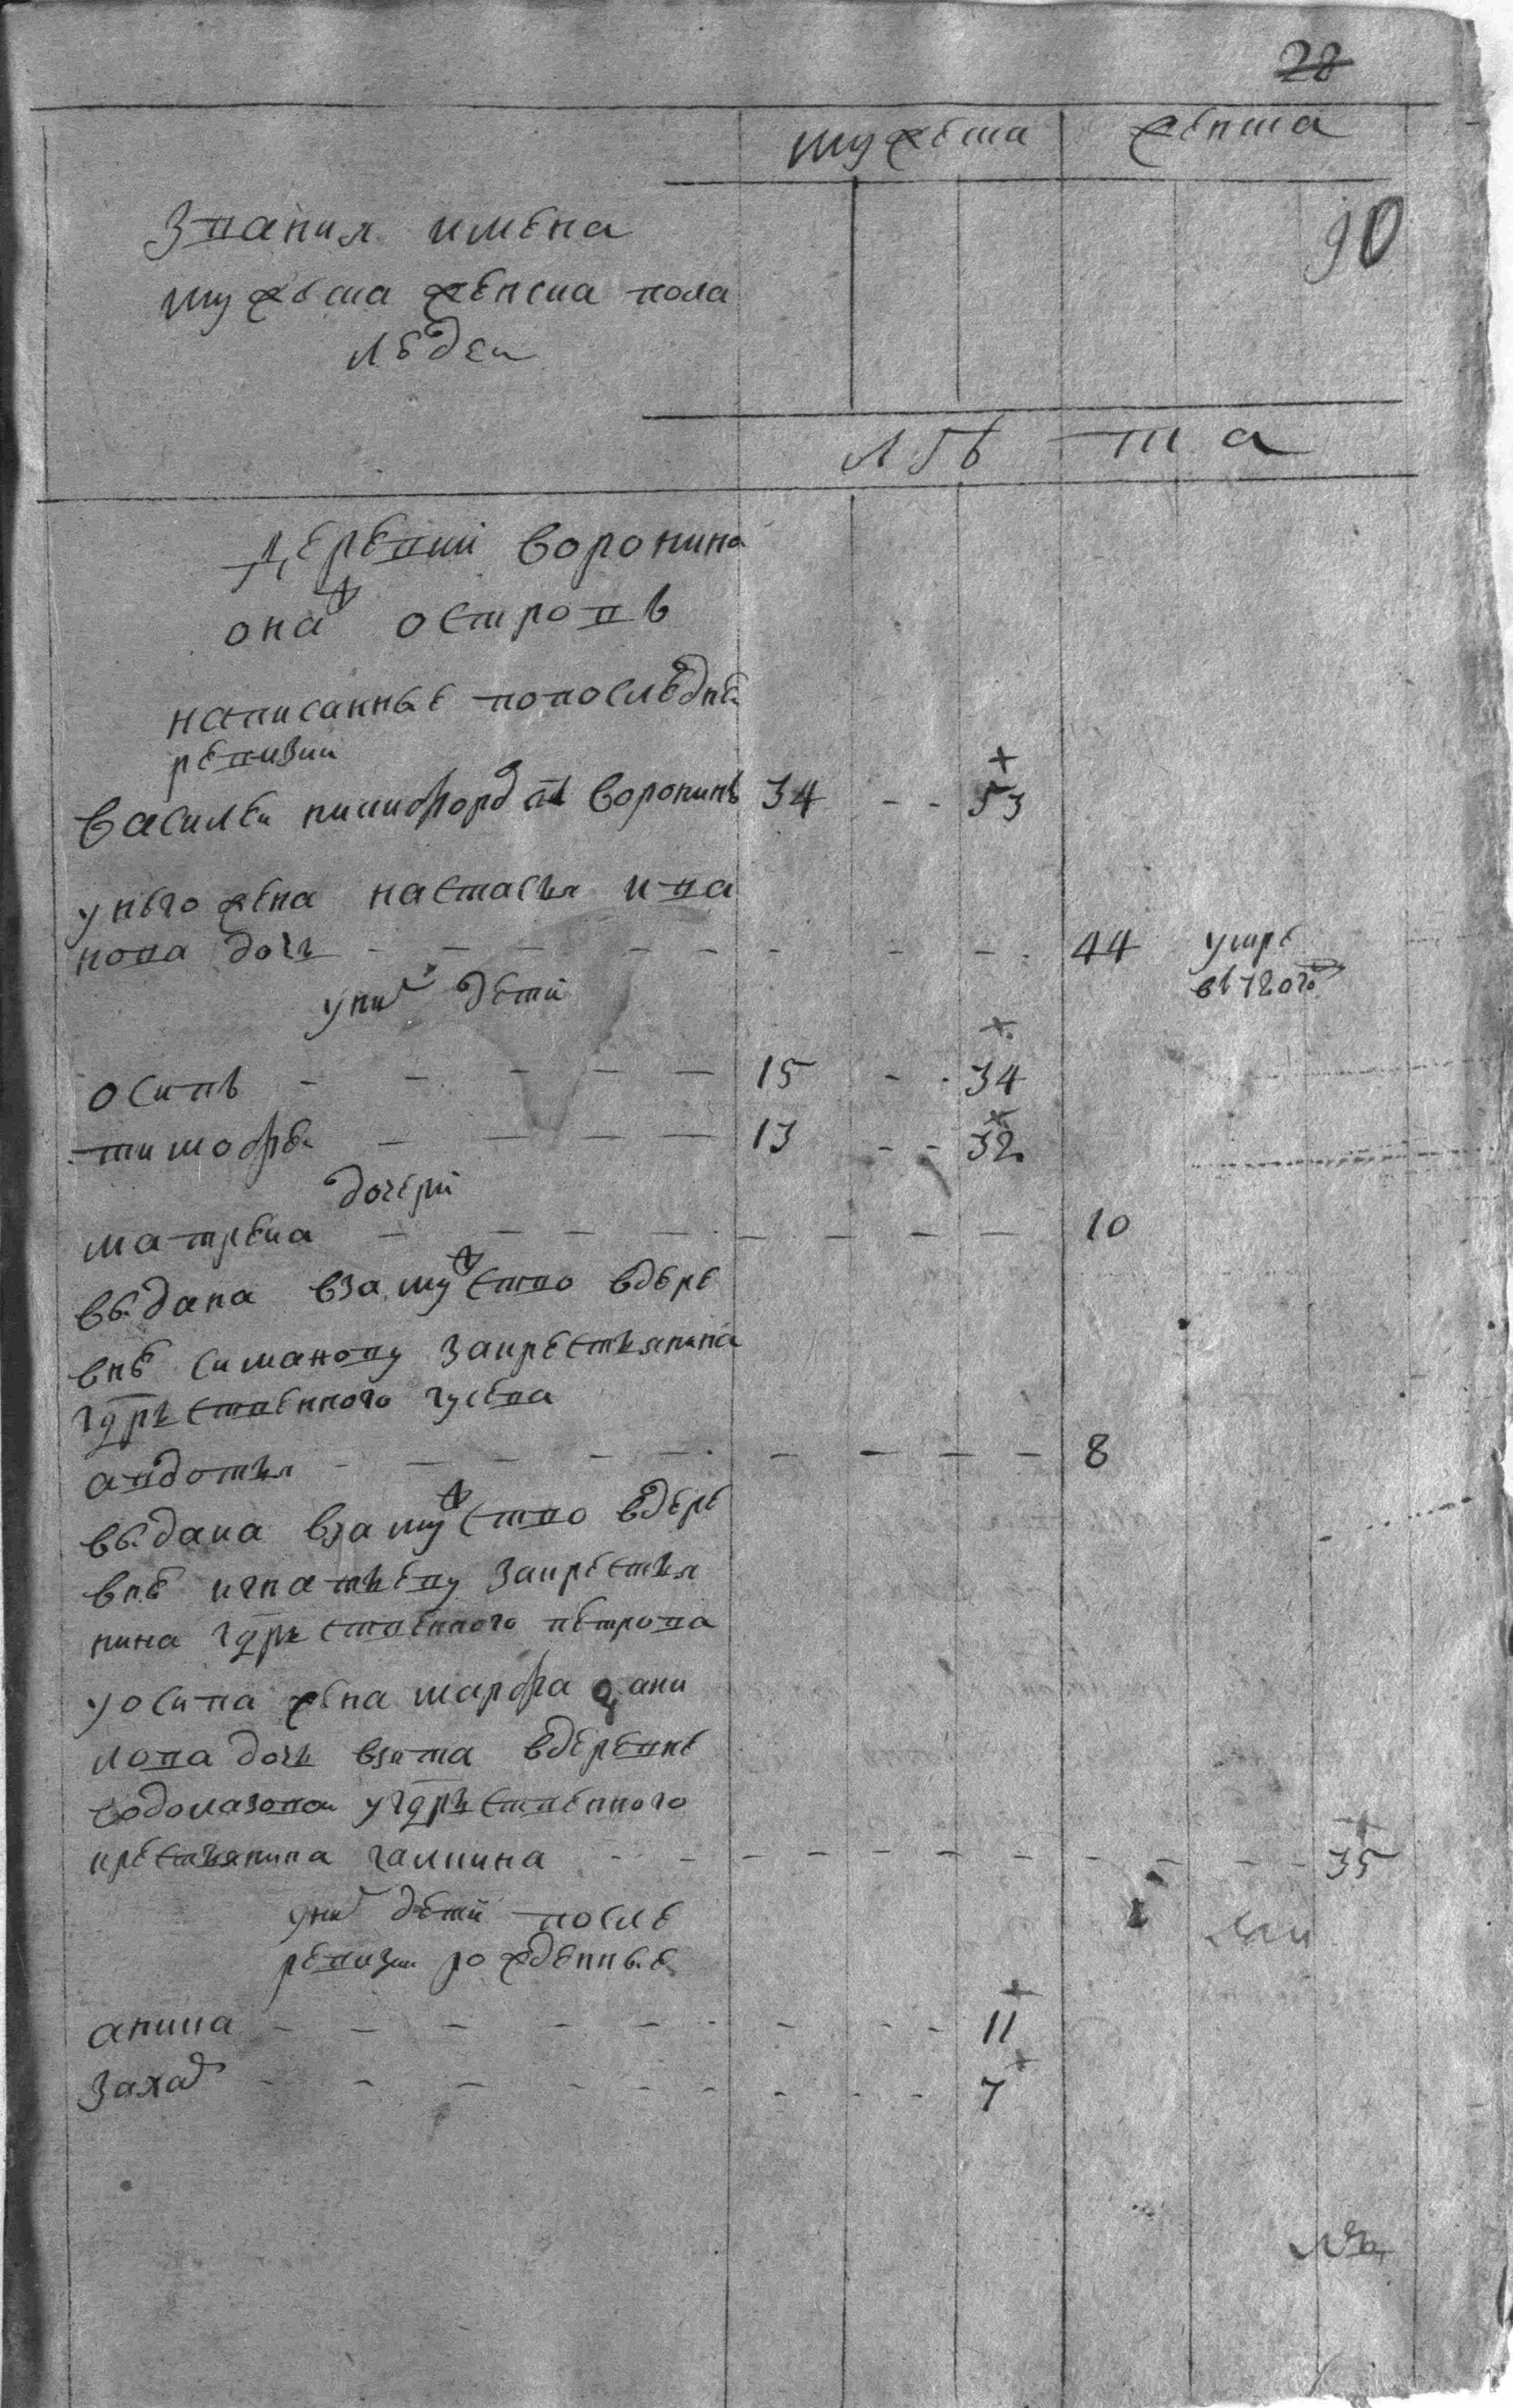 28
мужеска женска
90
Звания имена
мужеска женска пола
людеи
лѣ та
Деревни Воронина
она ж островъ
написанные попоследнеи
ревизии
Василеи никифоровъ Воронинъ 34 - - 53
унего жена настасья ива
нова дочь - - - 44 умре
в 1801 год
уних дети
осипъ - - - 15 - - 34
тимофеи - - - 13 - - 32
дочери
матрена - - - 10
выдана взамужство вдере
вне симанову закрестьянина
гдрственного гусева
авдотья - - - 8
выдана взамужство вдере
вне игнатьеву закрестья
нина гдрственного петрова
уосипа жена марфа дани
лова дочь взята вдеревне
угдрственного
крестьянина галкина - - - 35
уних дети после
ревизии рожденные
аника - - - 11
Захар - - - 7